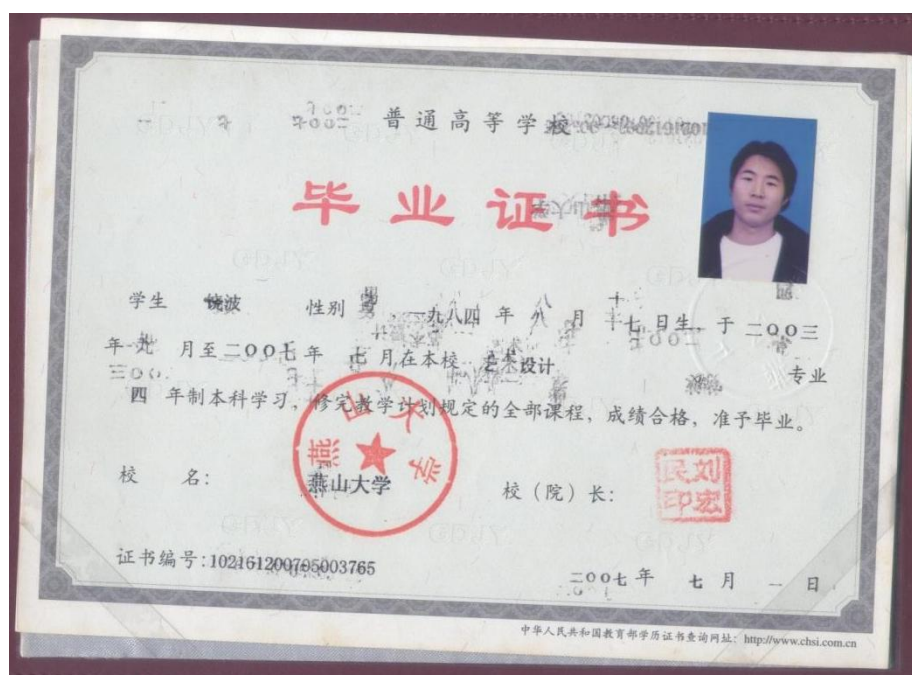 普通高等学校
毕业证书
学生 饶波 性别 一九八四年 八月 十七日生，于二〇〇三
年 九 月至二〇〇七年 七月在本校 艺术设计 专业
四 年制本科学习，修完教学计划规定的全部课程，成绩合格，准予毕业。
燕山大学
校 名： 燕山大学 校（院）长： 刘宏民印
证书编号：102161200705003765
二〇〇七年 七月 一日
中华人民共和国教育部学历证书查询网址：http://www.chsi.com.cn